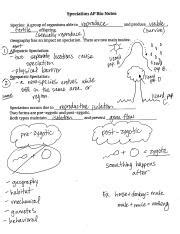 Speciation AP Bio Notes
Species: A group of organisms able to reproduce and produce viable,
fertile offspring. (survive)
sexually reproduce
Geography has an impact on speciation. There are two main modes:
① Allopatric Speciation:
- two separate locations cause
speciation
- physical barrier
② Sympatric Speciation:
- a new species evolves while
still in the same area
or region
Speciation occurs due to reproductive isolation.
Two forms are pre-zygotic and post-zygotic.
Both types maintain isolation and prevent gene flow
pre-zygotic
post-zygotic
zygote
something happens
after
- geography
- habitat
- mechanical
- gametes
- behavioral
Ex: horse + donkey = mule
mule + mule = nothing